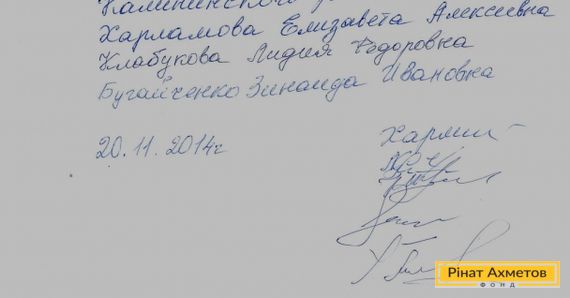 Калининского р
Харламова Елизавета Алексеевна
Клабукова Лидия Федоровна
Бугайченко Зинаида Ивановна
20.11.2014г
Рінат Ахметов
ФОНД